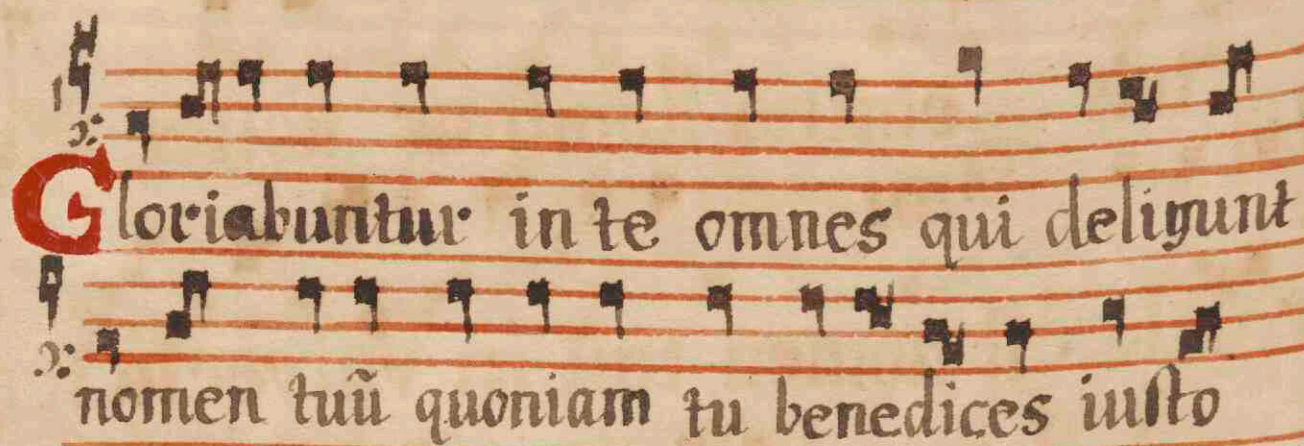 Gloriabuntur in te omnes qui deligunt
nomen tuū quoniam tu benedices iusto